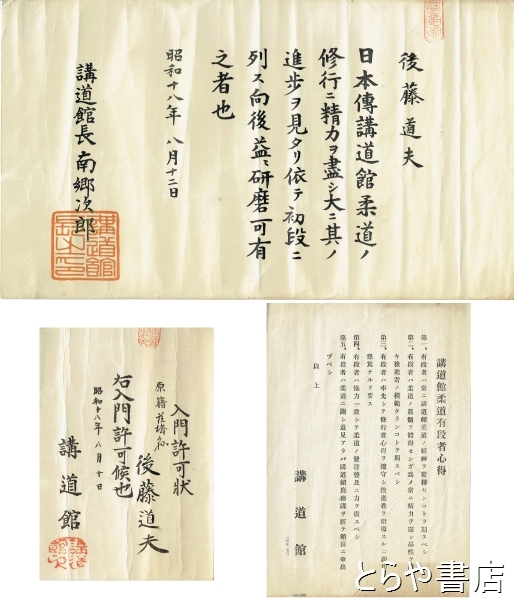 後藤道夫
日本傳講道館柔道ノ
修行ニ精力ヲ盡シ大ニ其ノ
進歩ヲ見タリ依テ初段ニ
列ス向後益〻研磨可有
之者也
昭和十八年 八月十二日
講道館長 南郷次郎
入門許可状
後藤道夫
右入門許可候也
昭和十八年 八月 十日
講道館
講道館柔道有段者心得
第一、有段者ハ常ニ講道館柔道ノ精神ヲ發揮センコトヲ期スベシ
第二、有段者ハ柔道ノ真髄ヲ體得センガ為メ常ニ精力ヲ盡シ品性ヲ
キ後進者ノ模範タランコトヲ期スベシ
第三、有段者ハ率先シテ修行者心得ヲ遵守シ後進者ヲ指導スルニ
第四、有段者ハ協力一致シテ柔道ノ發達普及ニ力ヲ盡スベシ
第五、有段者ハ柔道ニ關シ意見アラバ講道館庶務課ヲ經テ館長ニ申出
ヅベシ
以上
講道館
とらや書店